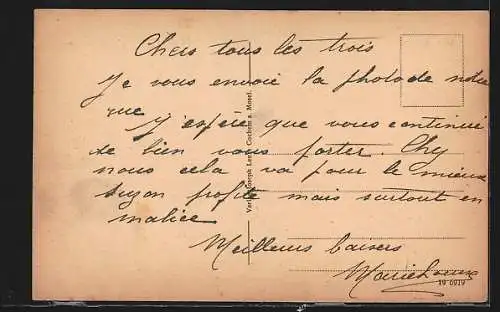 Chers tous les trois
Je vous envoie la photo de notre
rue
J'espère que vous continuez
de bien vous porter. Chez
nous cela va pour le mieux
Suzon profite mais surtout en
malice
Meilleurs baisers
Marie Louise
Verlag Joseph Lenz, Cochem a. Mosel.
19 6919